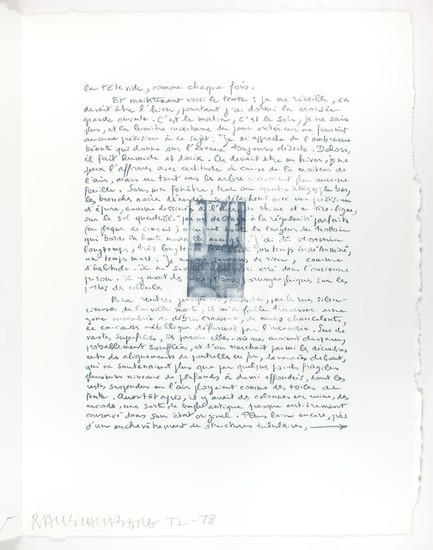 la tête vide, comme chaque fois.
Et maintenant voici le texte : je me réveille, ça
devait être l'hiver, pourtant j'ai dormi la croisée
grande ouverte. C'est le matin, c'est le soir, je ne sais
plus, et la lumière incertaine du jour extérieur ne fournit
aucune précision à ce sujet. Je m'approche de l'embrasure
béante qui donne sur l'avenue toujours déserte. Dehors,
il fait humide et doux. Ça devait être en hiver, je ne
peux l'affirmer avec certitude à cause de la moiteur de
l'air, mais en tout cas les arbres n'avaient plus aucune
feuille. Sous ma fenêtre, trois ou quatre étages en bas,
les branches noires se détachent avec une précision
d'épure, comme dessinées à l'encre de chine et au tire-ligne,
sur le sol quadrillé à la régularité parfaite
(en plaques de ciment) la largeur du trottoir
qui borde j'ai dû dormir
longtemps, très un temps indéterminé,
un temps mort. Je de rien, comme
d'habitude. Je ne dans l'ancienne
prison. Il y avait des sur les
portes des cellules.
Pour rentrer jusqu' ensuite, par les rues silen-
cieuses de la ville morte, il m'a fallu traverser une
zone encombrée de débris crasseux, de murs chancelants,
de carcasses métalliques déformées par l'incendie. Sur de
vastes superficies, les parois elles-mêmes avaient disparu,
probablement soufflées, et l'on marchait parmi les décombres
entre des alignements de poutrelles en fer, demeurées debout,
qui ne soutenaient plus que par quelques points fragiles
plusieurs niveaux de plafonds à demi effondrés, dont les
restes suspendus en l'air ployaient comme des toiles de
tente. Aussitôt après, il y avait des colonnes en ruine, des
arcades, une sorte de temple antique presque entièrement
conservé dans son état originel. Plus loin encore, près
d'un enchevêtrement de structures tubulaires, →
RAUSCHENBERG 72-78